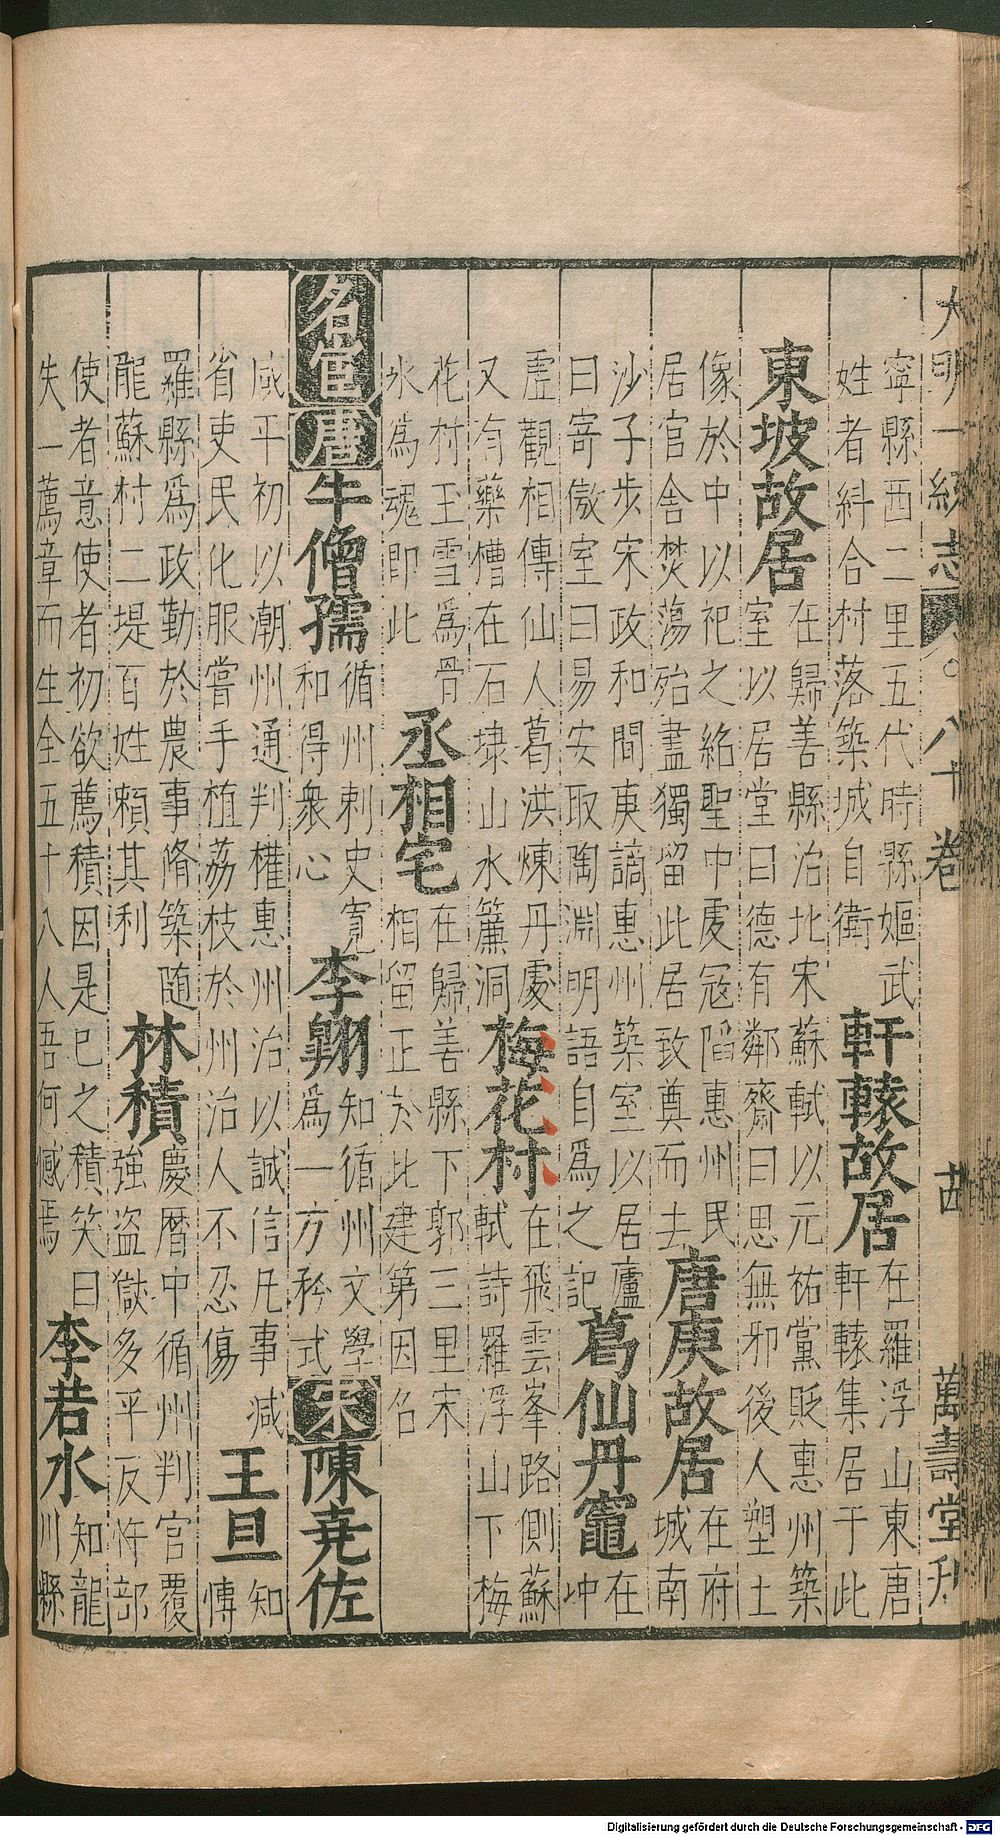 大明一統志 八十卷 萬壽堂刊
寧縣西二里五代時縣嫗武
姓者糾合村落築城自衛
軒轅故居
在羅浮山東唐
軒轅集居于此
東坡故居
在歸善縣治北宋蘇軾以元祐黨貶惠州築
室以居堂曰德有鄰齋曰思無邪後人塑土
像於中以祀之紹聖中虔寇陷惠州民
居官舍焚蕩殆盡獨留此居致奠而去
唐庚故居
在府
城南
沙子步宋政和間庚謫惠州築室以居廬
曰寄傲室曰易安取陶淵明語自爲之記
葛仙丹竈
在
冲
虛觀相傳仙人葛洪煉丹處
又有藥槽在石埭山水簾洞
梅花村
在飛雲峯路側蘇
軾詩羅浮山下梅
花村玉雪爲骨
氷爲魂即此
丞相宅
在歸善縣下郭三里宋
相留正於此建第因名
名宦 唐 牛僧孺
循州刺史寬
和得衆心
李翱
知循州文學
爲一方矜式
宋 陳堯佐
咸平初以潮州通判權惠州治以誠信凡事減
省吏民化服嘗手植荔枝於州治人不忍傷
王旦
知
博
羅縣爲政勤於農事脩築随
龍蘇村二堤百姓賴其利
林積
慶曆中循州判官覆
強盜獄多平反忤部
使者意使者初欲薦積因是已之積笑曰
失一薦章而生全五十八人吾何憾焉
李若水
知龍
川縣
Digitalisierung gefördert durch die Deutsche Forschungsgemeinschaft - DFG